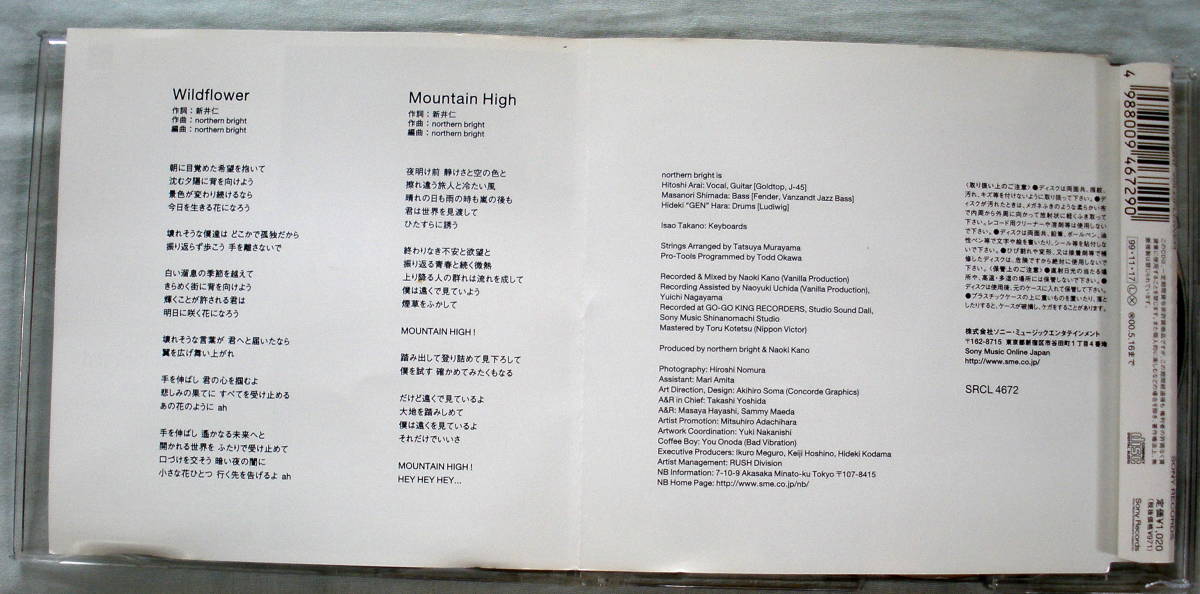 Wildflower
作詞：新井仁
作曲：northern bright
編曲：northern bright
朝に目覚めた希望を抱いて
沈む夕陽に背を向けよう
景色が変わり続けるなら
今日を生きる花になろう
壊れそうな僕達は どこかで孤独だから
振り返らず歩こう 手を離さないで
白い溜息の季節を越えて
きらめく街に背を向けよう
輝くことが許される君は
明日に咲く花になろう
壊れそうな言葉が 君へと届いたなら
翼を広げ舞い上がれ
手を伸ばし 君の心を掴むよ
悲しみの果てに すべてを受け止める
あの花のように ah
手を伸ばし 遙かなる未来へと
開かれる世界を ふたりで受け止めて
口づけを交そう 暗い夜の闇に
小さな花ひとつ 行く先を告げるよ ah
Mountain High
作詞：新井仁
作曲：northern bright
編曲：northern bright
夜明け前 静けさと空の色と
擦れ違う旅人と冷たい風
晴れの日も雨の時も嵐の後も
君は世界を見渡して
ひたすらに誘う
終わりなき不安と欲望と
振り返る青春と続く微熱
上り降る人の群れは流れを成して
僕は遠くで見ていよう
煙草をふかして
MOUNTAIN HIGH !
踏み出して登り詰めて見下ろして
僕を試す 確かめてみたくもなる
だけど遠くで見ているよ
大地を踏みしめて
僕は遠くを見ているよ
それだけでいいさ
MOUNTAIN HIGH !
HEY HEY HEY...
northern bright is
Hitoshi Arai: Vocal, Guitar [Goldtop, J-45]
Masanori Shimada: Bass [Fender, Vanzandt Jazz Bass]
Hideki "GEN" Hara: Drums [Ludiwig]
Isao Takano: Keyboards
Strings Arranged by Tatsuya Murayama
Pro-Tools Programmed by Todd Okawa
Recorded & Mixed by Naoki Kano (Vanilla Production)
Recording Assisted by Naoyuki Uchida (Vanilla Production),
Yuichi Nagayama
Recorded at GO-GO KING RECORDERS, Studio Sound Dali,
Sony Music Shinanomachi Studio
Mastered by Toru Kotetsu (Nippon Victor)
Produced by northern bright & Naoki Kano
Photography: Hiroshi Nomura
Assistant: Mari Amita
Art Direction, Design: Akihiro Soma (Concorde Graphics)
A&R in Chief: Takashi Yoshida
A&R: Masaya Hayashi, Sammy Maeda
Artist Promotion: Mitsuhiro Adachihara
Artwork Coordination: Yuki Nakanishi
Coffee Boy: You Onoda (Bad Vibration)
Executive Producers: Ikuro Meguro, Keiji Hoshino, Hideki Kodama
Artist Management: RUSH Division
NB Information: 7-10-9 Akasaka Minato-ku Tokyo 〒107-8415
NB Home Page: http://www.sme.co.jp/nb/
〈取り扱い上のご注意〉●ディスクは両面共、指紋、
汚れ、キズ等を付けないように取り扱って下さい。●デ
ィスクが汚れたときは、メガネふきのような柔らかい布
で内周から外周に向かって放射状に軽くふき取って
下さい。レコード用クリーナーや溶剤等は使用しない
で下さい。●ディスクは両面共、鉛筆、ボールペン、油
性ペン等で文字や絵を書いたり、シール等を貼付しな
いで下さい。●ひび割れや変形、又は接着剤等で補
修したディスクは、危険ですから絶対に使用しないで
下さい。〈保管上のご注意〉●直射日光の当たる場
所や、高温・多湿の場所には保管しないで下さい。●
ディスクは使用後、元のケースに入れて保管して下さい。
●プラスチックケースの上に重いものを置いたり、落と
したりすると、ケースが破損し、ケガをすることがあります。
株式会社ソニー・ミュージックエンタテインメント
〒162-8715 東京都新宿区市谷田町1丁目4番地
Sony Music Online Japan
http://www.sme.co.jp/
SRCL 4672
4 988009 467290
'99・11・17
00.5.16まで
SONY RECORDS
定価¥1,020
(税抜価格¥971)
Sony Records